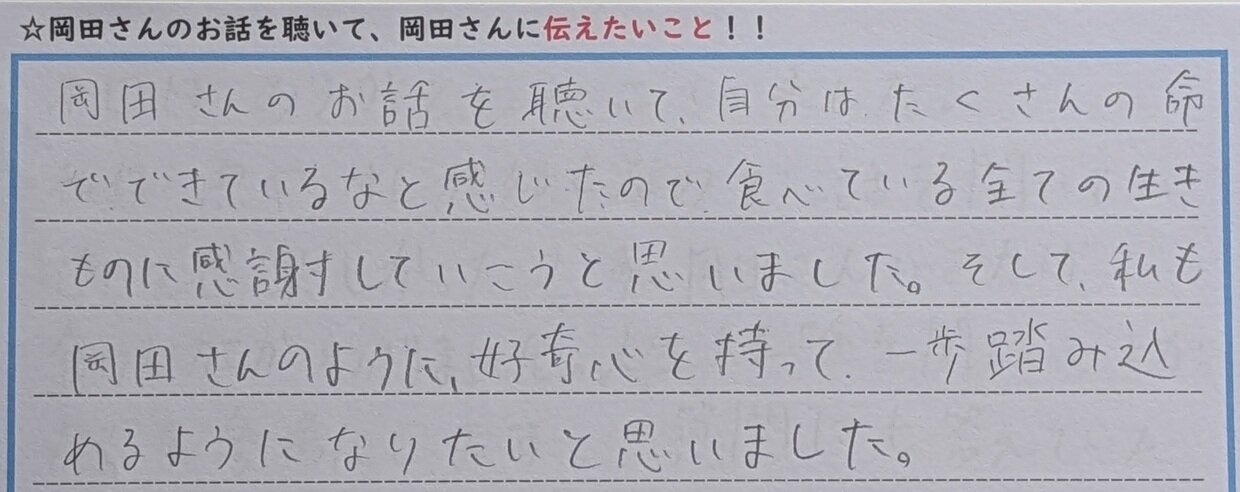 ☆岡田さんのお話を聴いて、岡田さんに伝えたいこと！！
岡田さんのお話を聴いて、自分はたくさんの命
でできているなと感じたので、食べている全ての生き
ものに感謝していこうと思いました。そして、私も
岡田さんのように、好奇心を持って、一歩踏み込
めるようになりたいと思いました。